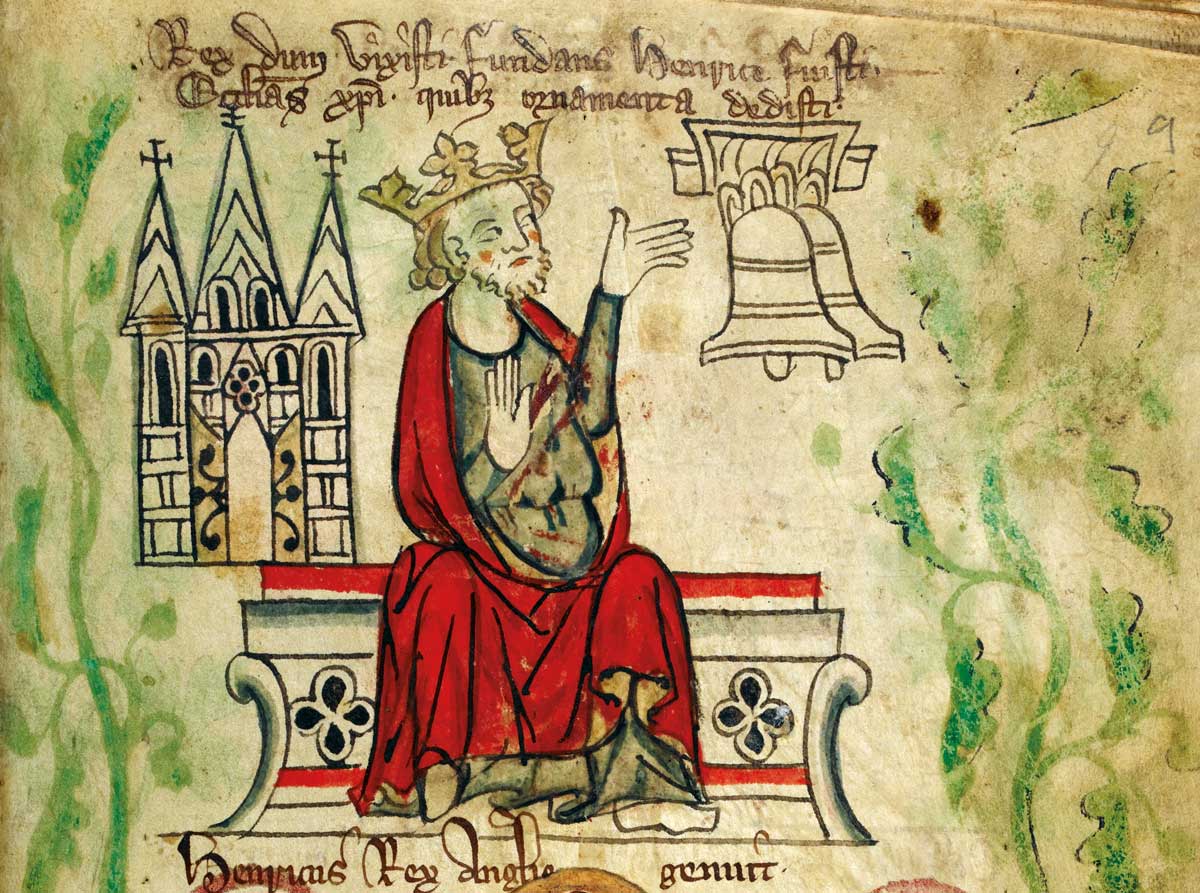 Rex dum vixisti fundans Henrice fuisti.
Ecclias xpi. quibz ornamenta dedisti.
9
Henricus Rex Anglie genuit.